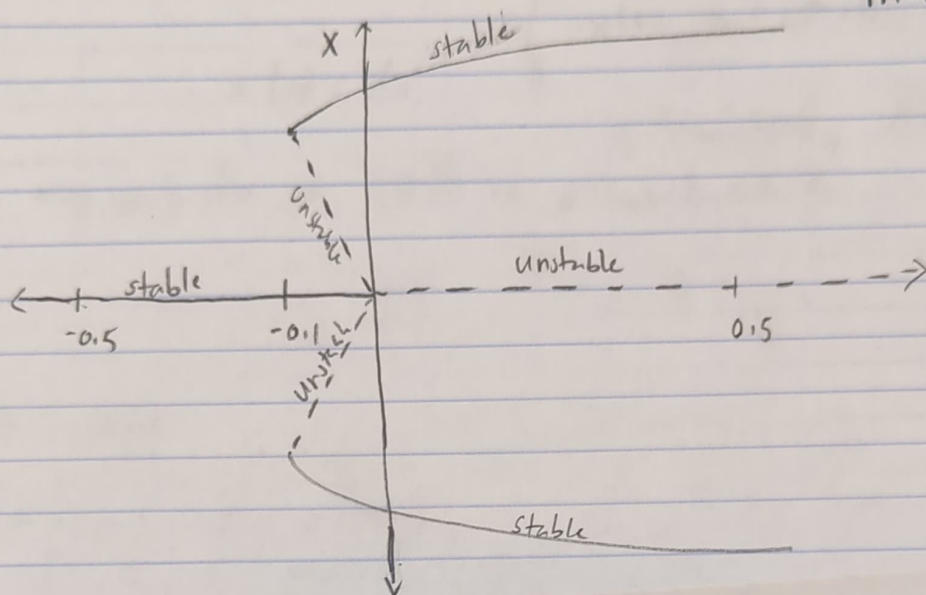 X
stable
unstable
stable
unstable
-0.5
-0.1
0.5
unstable
stable